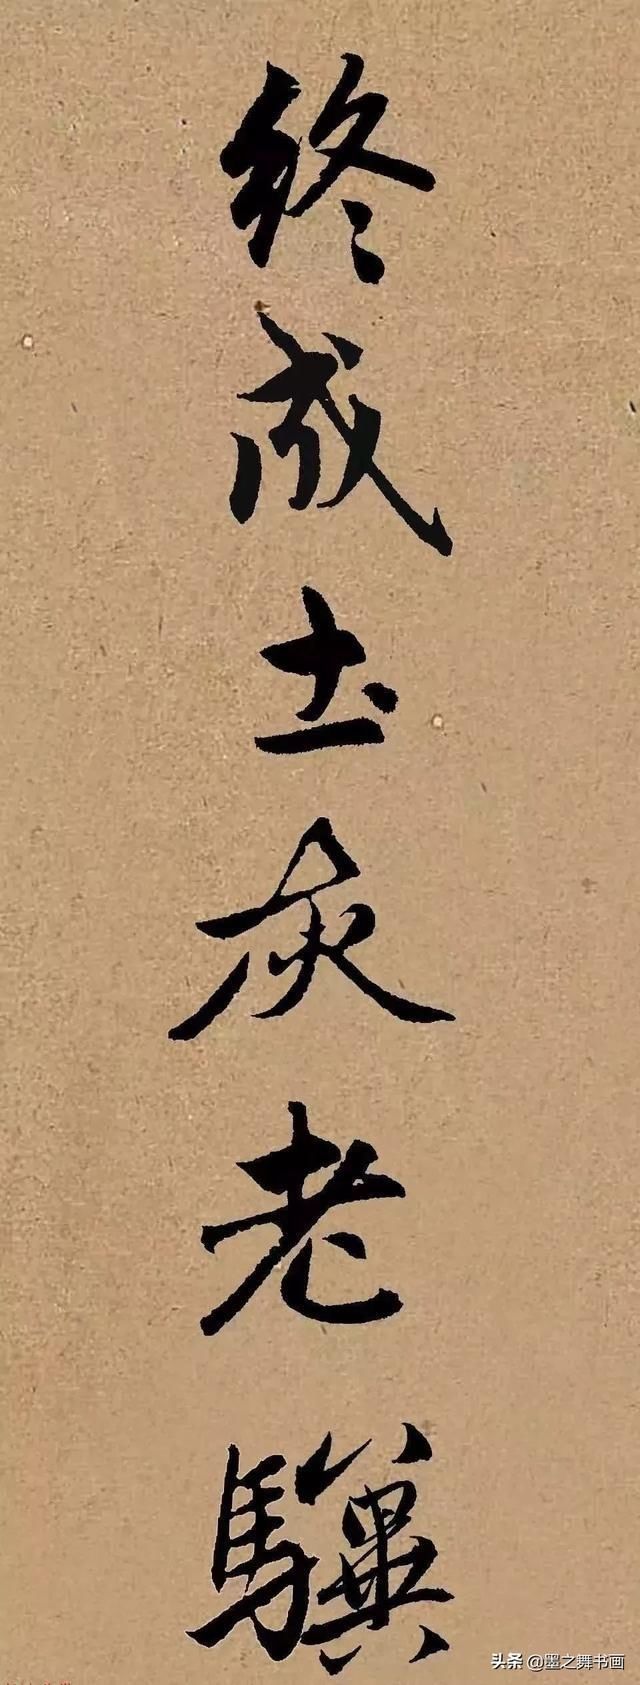 終成土灰老驥
头条 @墨之舞书画